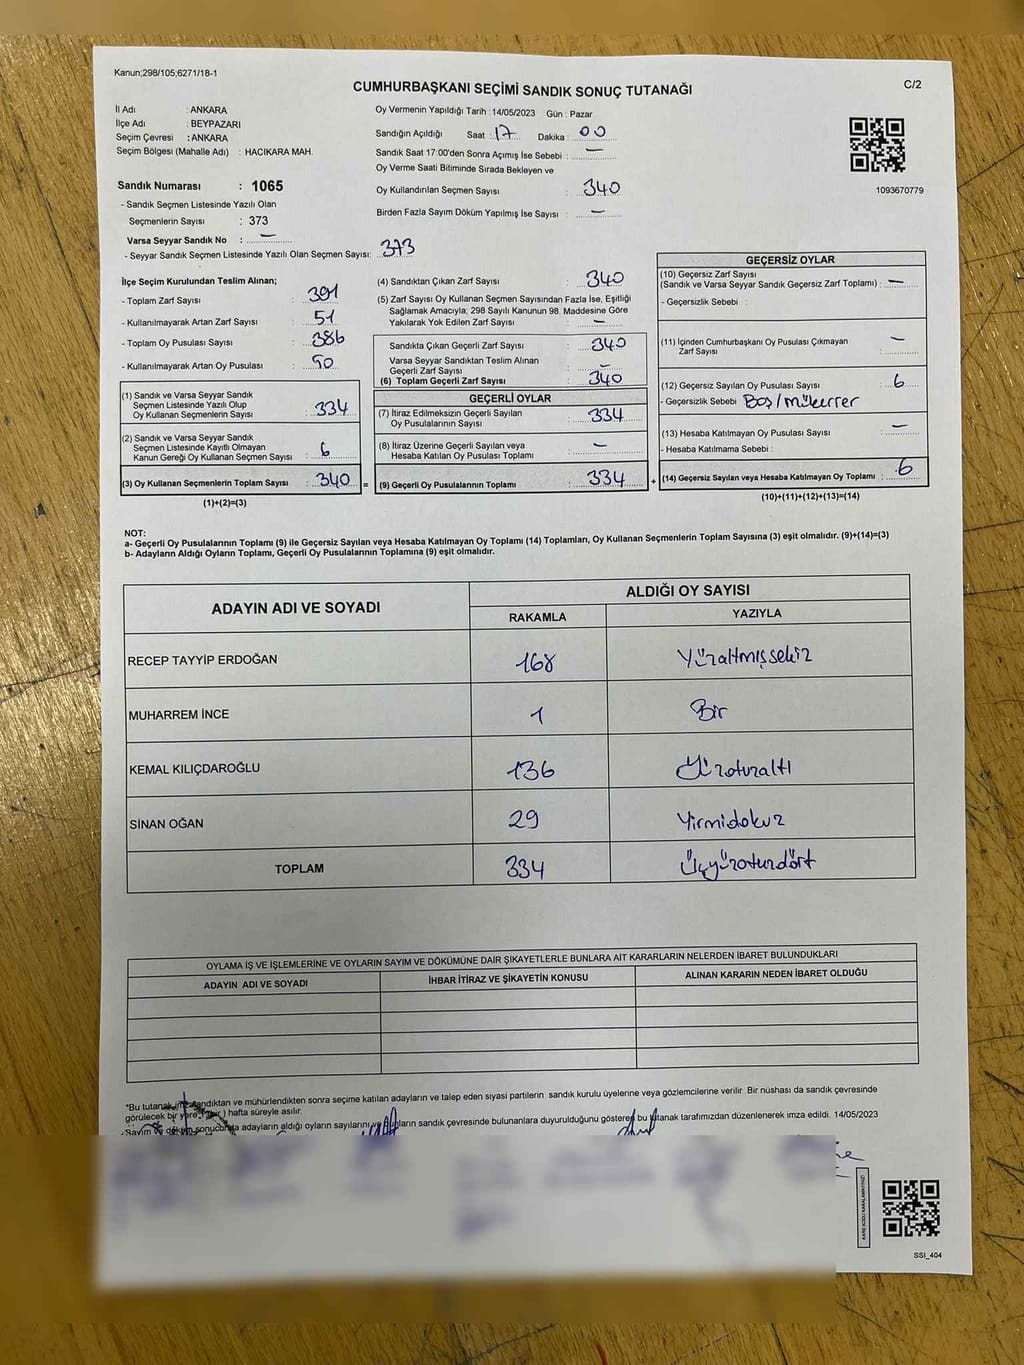 Kanun;298/105;6271/18-1
CUMHURBAŞKANI SEÇİMİ SANDIK SONUÇ TUTANAĞI
C/2
İl Adı : ANKARA
İlçe Adı : BEYPAZARI
Seçim Çevresi : ANKARA
Seçim Bölgesi (Mahalle Adı) : HACIKARA MAH.
Sandık Numarası : 1065
- Sandık Seçmen Listesinde Yazılı Olan
Seçmenlerin Sayısı : 373
Varsa Seyyar Sandık No : —
- Seyyar Sandık Seçmen Listesinde Yazılı Olan Seçmen Sayısı: 373
Oy Vermenin Yapıldığı Tarih : 14/05/2023 Gün : Pazar
Sandığın Açıldığı Saat : 17 Dakika : 00
Sandık Saat 17:00'den Sonra Açımış İse Sebebi : —
Oy Verme Saati Bitiminde Sırada Bekleyen ve
Oy Kullandırılan Seçmen Sayısı : 340
Birden Fazla Sayım Döküm Yapılmış İse Sayısı : —
1093670779
İlçe Seçim Kurulundan Teslim Alınan;
- Toplam Zarf Sayısı : 391
- Kullanılmayarak Artan Zarf Sayısı : 51
- Toplam Oy Pusulası Sayısı : 386
- Kullanılmayarak Artan Oy Pusulası : 50
(1) Sandık ve Varsa Seyyar Sandık
Seçmen Listesinde Yazılı Olup
Oy Kullanan Seçmenlerin Sayısı : 334
(2) Sandık ve Varsa Seyyar Sandık
Seçmen Listesinde Kayıtlı Olmayan
Kanun Gereği Oy Kullanan Seçmen Sayısı : 6
(3) Oy Kullanan Seçmenlerin Toplam Sayısı : 340 =
(1)+(2)=(3)
(4) Sandıktan Çıkan Zarf Sayısı : 340
(5) Zarf Sayısı Oy Kullanan Seçmen Sayısından Fazla İse, Eşitliği
Sağlamak Amacıyla; 298 Sayılı Kanunun 98. Maddesine Göre
Yakılarak Yok Edilen Zarf Sayısı : —
Sandıkta Çıkan Geçerli Zarf Sayısı : 340
Varsa Seyyar Sandıktan Teslim Alınan
Geçerli Zarf Sayısı : —
(6) Toplam Geçerli Zarf Sayısı : 340
GEÇERLİ OYLAR
(7) İtiraz Edilmeksizin Geçerli Sayılan
Oy Pusulalarının Sayısı : 334
(8) İtiraz Üzerine Geçerli Sayılan veya
Hesaba Katılan Oy Pusulası Toplamı : —
(9) Geçerli Oy Pusulalarının Toplamı : 334 +
GEÇERSİZ OYLAR
(10) Geçersiz Zarf Sayısı
(Sandık ve Varsa Seyyar Sandık Geçersiz Zarf Toplamı) : —
- Geçersizlik Sebebi :
(11) İçinden Cumhurbaşkanı Oy Pusulası Çıkmayan
Zarf Sayısı : —
(12) Geçersiz Sayılan Oy Pusulası Sayısı : 6
- Geçersizlik Sebebi : Boş/mükerrer
(13) Hesaba Katılmayan Oy Pusulası Sayısı : —
- Hesaba Katılmama Sebebi :
(14) Geçersiz Sayılan veya Hesaba Katılmayan Oy Toplamı : 6
(10)+(11)+(12)+(13)=(14)
NOT:
a- Geçerli Oy Pusulalarının Toplamı (9) ile Geçersiz Sayılan veya Hesaba Katılmayan Oy Toplamı (14) Toplamları, Oy Kullanan Seçmenlerin Toplam Sayısına (3) eşit olmalıdır. (9)+(14)=(3)
b- Adayların Aldığı Oyların Toplamı, Geçerli Oy Pusulalarının Toplamına (9) eşit olmalıdır.
ADAYIN ADI VE SOYADI
ALDIĞI OY SAYISI
RAKAMLA YAZIYLA
RECEP TAYYİP ERDOĞAN 168 Yüzaltmışsekiz
MUHARREM İNCE 1 Bir
KEMAL KILIÇDAROĞLU 136 Yüzotuzaltı
SİNAN OĞAN 29 Yirmidokuz
TOPLAM 334 Üçyüzotuzdört
OYLAMA İŞ VE İŞLEMLERİNE VE OYLARIN SAYIM VE DÖKÜMÜNE DAİR ŞİKAYETLERLE BUNLARA AİT KARARLARIN NELERDEN İBARET BULUNDUKLARI
ADAYIN ADI VE SOYADI İHBAR İTİRAZ VE ŞİKAYETİN KONUSU ALINAN KARARIN NEDEN İBARET OLDUĞU
*Bu tutanak imzalandıktan ve mühürlendikten sonra seçime katılan adayların ve talep eden siyasi partilerin sandık kurulu üyelerine veya gözlemcilerine verilir. Bir nüshası da sandık çevresinde
görülecek bir yere 1 (bir) hafta süreyle asılır.
- Sayım ve döküm sonucunda adayların aldığı oyların sayılarını ve bunların sandık çevresinde bulunanlara duyurulduğunu gösteren bu tutanak tarafımızdan düzenlenerek imza edildi. 14/05/2023
KARE KODU KARALAMAYINIZ!
SSI_404